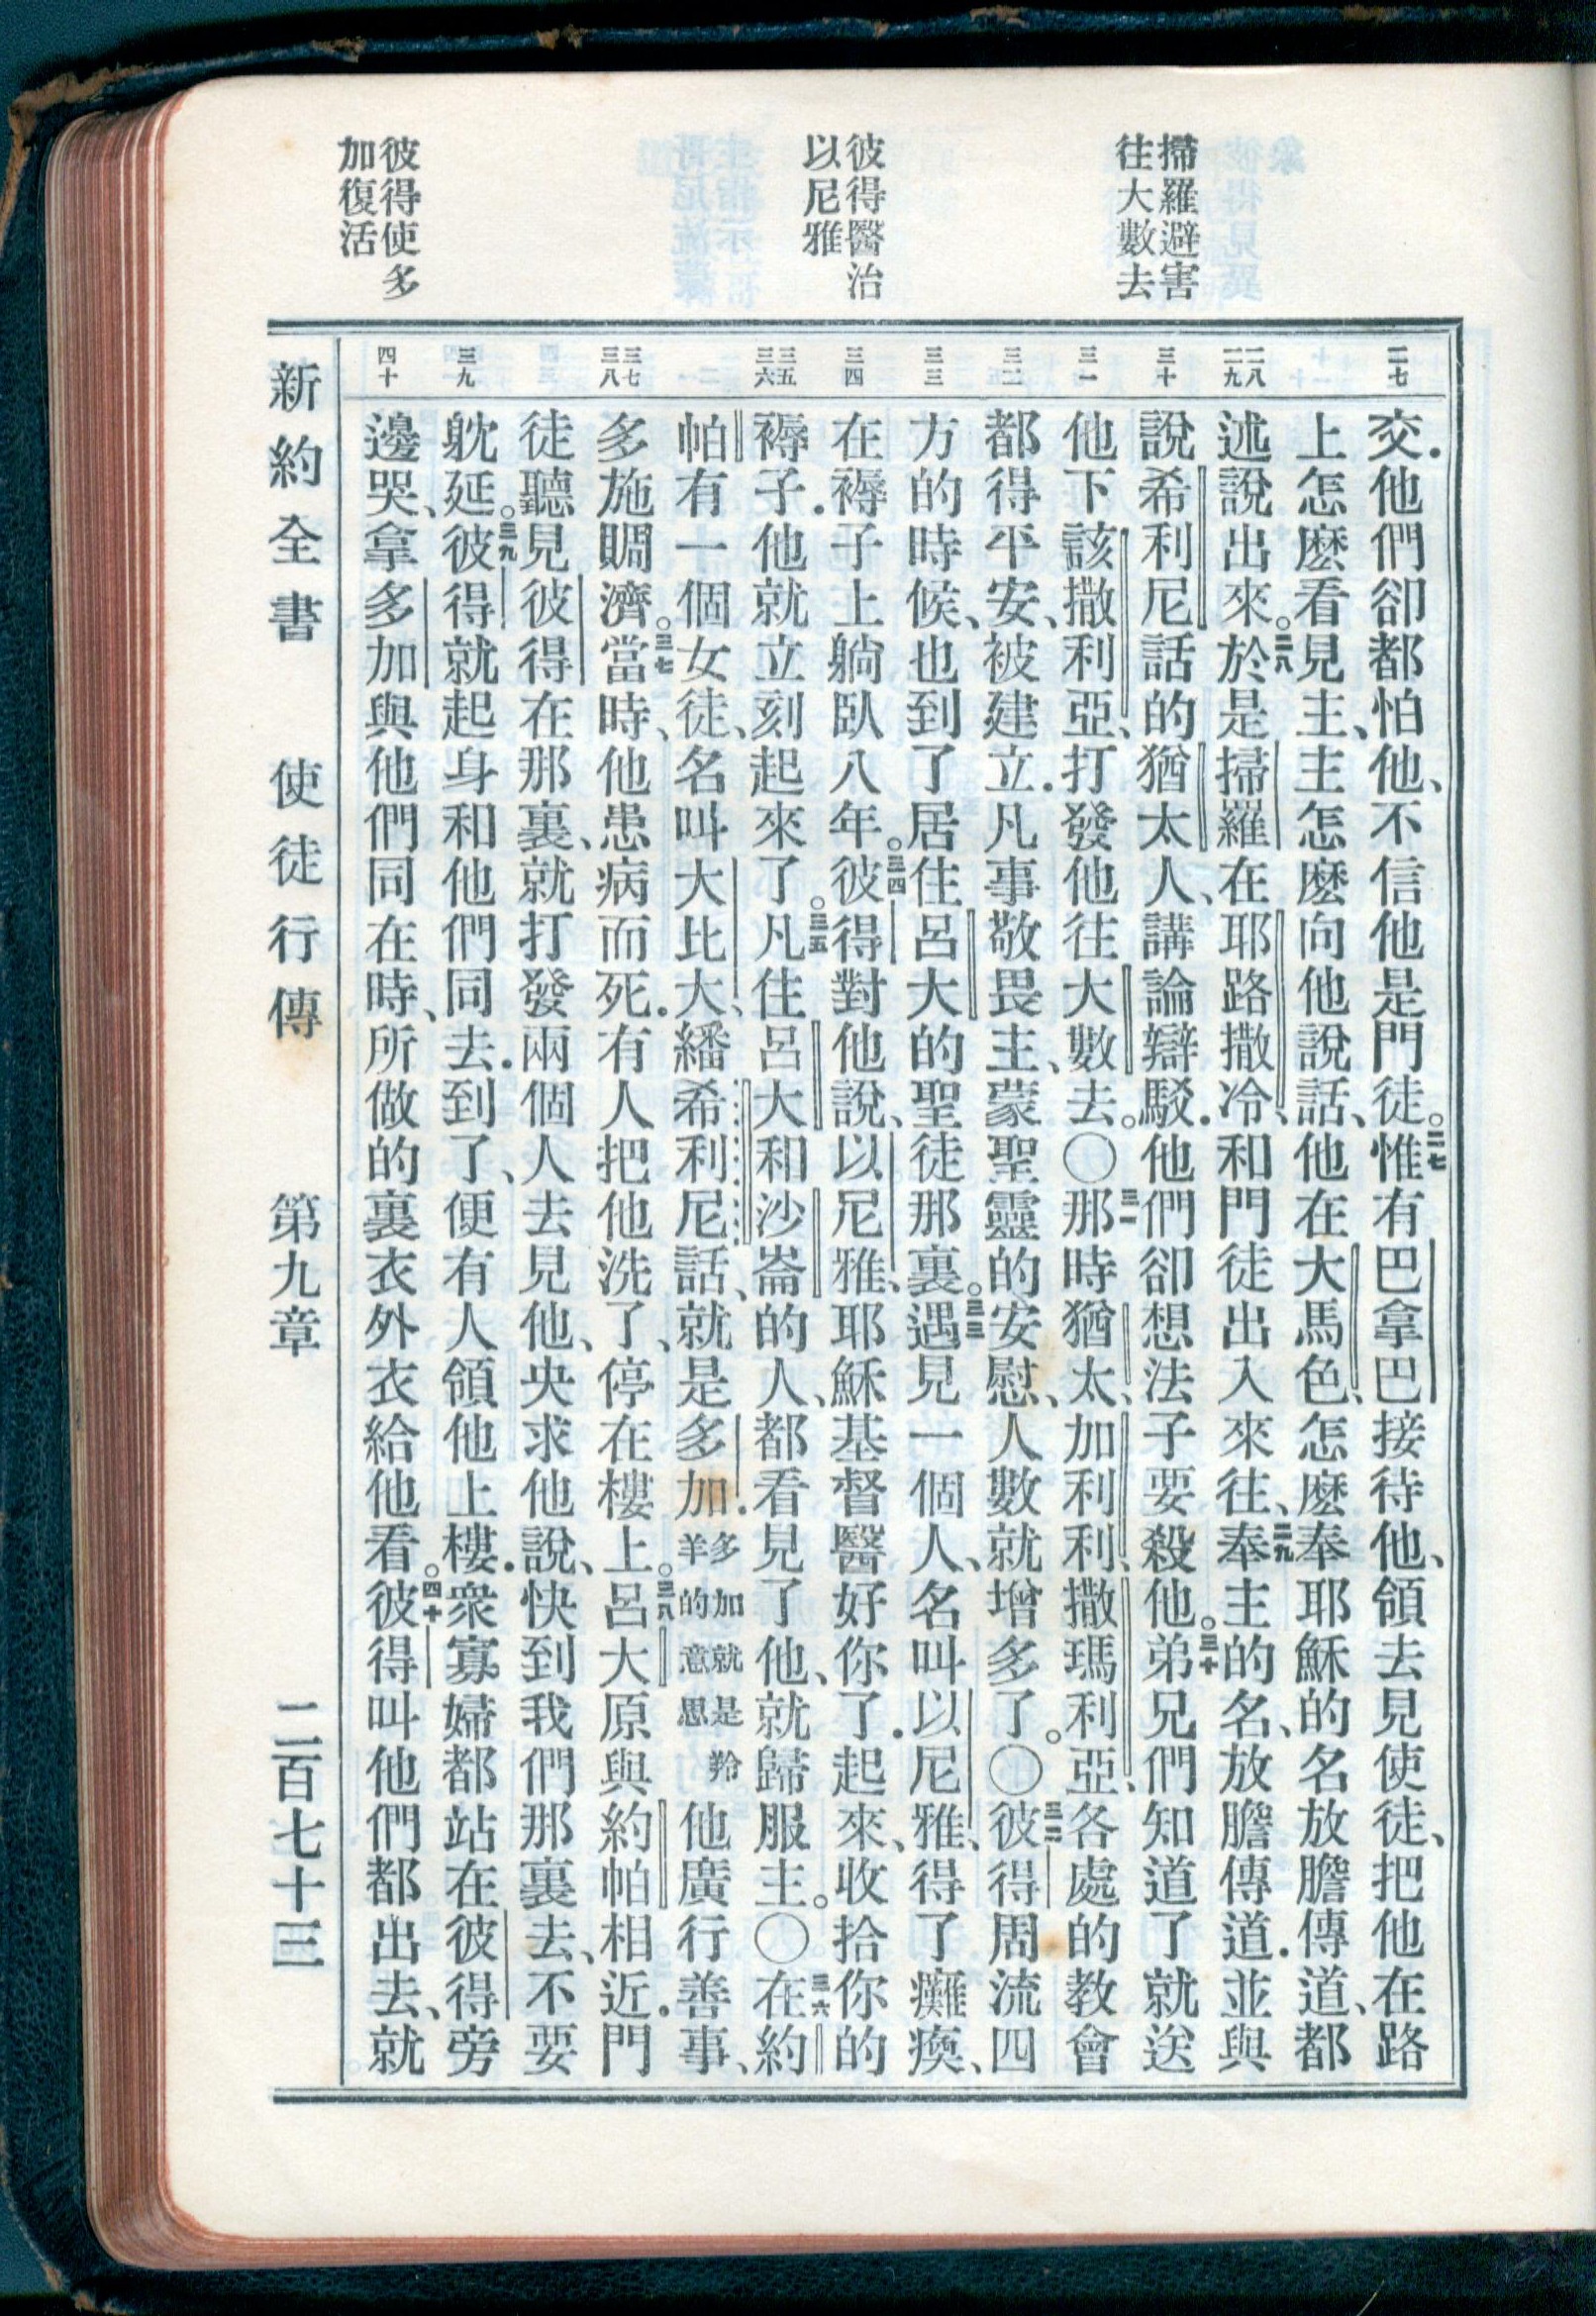 掃羅避害
往大數去
彼得醫治
以尼雅
彼得使多
加復活
二七
二八
二九
三十
三一
三二
三三
三四
三五
三六
三七
三八
三九
四十
交．他們卻都怕他、不信他是門徒。二七惟有巴拿巴接待他、領去見使徒、把他在路
上怎麽看見主、主怎麽向他說話、他在大馬色、怎麽奉耶穌的名放膽傳道、都
述說出來。二八於是掃羅在耶路撒冷、和門徒出入來往、二九奉主的名、放膽傳道．並與
說希利尼話的猶太人、講論辯駁．他們卻想法子要殺他。三十弟兄們知道了就送
他下該撒利亞、打發他往大數去。〇三一那時猶太、加利利、撒瑪利亞、各處的教會
都得平安、被建立．凡事敬畏主、蒙聖靈的安慰、人數就增多了。〇三二彼得周流四
方的時候、也到了居住呂大的聖徒那裏。三三遇見一個人、名叫以尼雅、得了癱瘓、
在褥子上躺臥八年。三四彼得對他說、以尼雅、耶穌基督醫好你了．起來、收拾你的
褥子．他就立刻起來了。三五凡住呂大和沙崙的人、都看見了他、就歸服主。〇三六在約
帕有一個女徒、名叫大比大、繙希利尼話、就是多加．多加就是羚羊的意思他廣行善事、
多施賙濟。三七當時、他患病而死．有人把他洗了、停在樓上。三八呂大原與約帕相近．門
徒聽見彼得在那裏、就打發兩個人去見他、央求他說、快到我們那裏去、不要
躭延。三九彼得就起身和他們同去．到了、便有人領他上樓．衆寡婦都站在彼得旁
邊哭、拿多加與他們同在時、所做的裏衣外衣給他看。四十彼得叫他們都出去、就
新約全書　使徒行傳　第九章　二百七十三